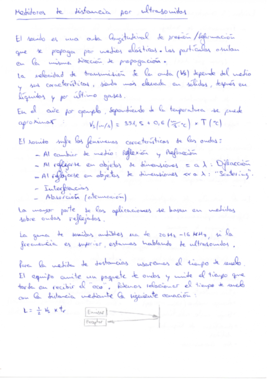 Medidores de distancia por ultrasonidos
El sonido es una onda longitudinal de presión/deformación
que se propaga por medios elásticos. Las partículas oscilan
en la misma dirección de propagación.
La velocidad de transmisión de la onda (Vs) depende del medio
y sus características, siendo más elevada en sólidos, después en
líquidos y por último gases.
En el aire por ejemplo, dependiendo de la temperatura se puede
aproximar: Vs (m/s) = 331,5 + 0,6 · T (°C)
El sonido sufre los fenómenos característicos de las ondas:
- Al cambiar de medio reflexión y Refracción
- Al reflejarse en objetos de dimensiones ≈ a λ: Difracción
- Al reflejarse en objetos de dimensiones a λ: "Scattering"
- Interferencias
- Absorción (atenuación)
La mayor parte de las aplicaciones se basan en medidas
sobre ondas reflejadas.
La gama de sonidos audibles es de 20 Hz - 16 kHz, si la
frecuencia es superior, estamos hablando de ultrasonidos.
Para la medida de distancias usaremos el tiempo de vuelo.
El equipo emite un paquete de ondas y mide el tiempo que
tarda en recibir el eco. Podemos relacionar el tiempo de vuelo
con la distancia mediante la siguiente ecuación:
L = ½ Vs × tv
Emisor
Receptor